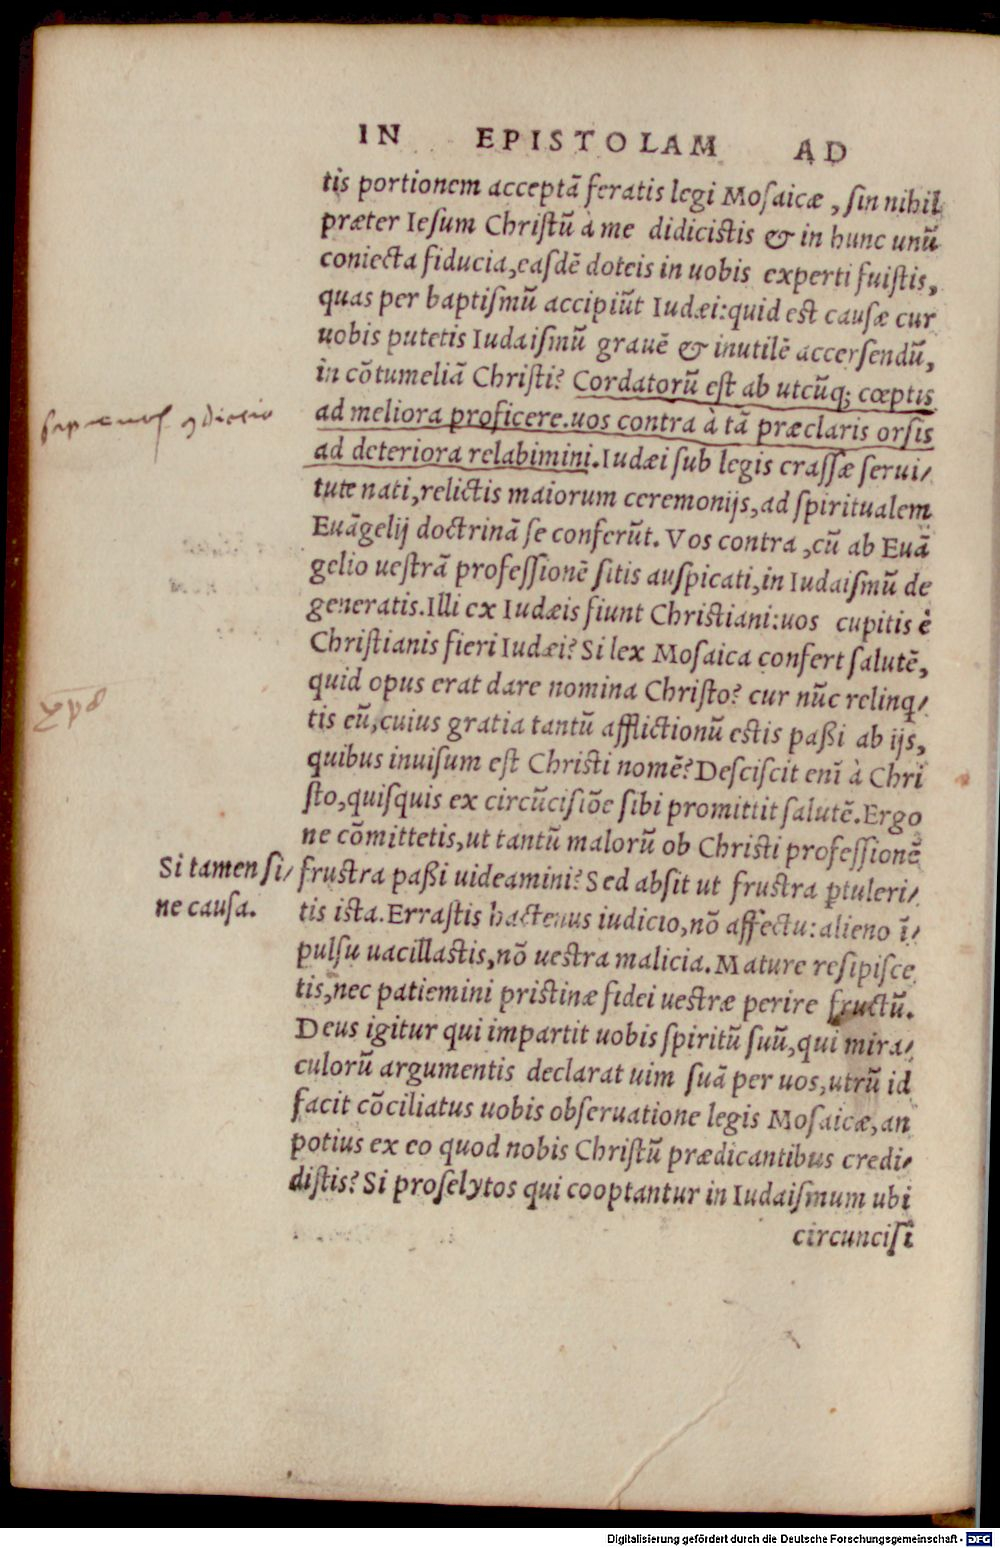 IN EPISTOLAM AD
tis portionem acceptā feratis legi Mosaicæ, sin nihil
præter Iesum Christū à me didicistis & in hunc unū
coniecta fiducia, easdē doteis in uobis experti fuistis,
quas per baptismū accipiūt Iudæi: quid est causæ cur
uobis putetis Iudaismū grauē & inutilē accersendū,
in cōtumeliā Christi? Cordatorū est ab utcūq; cœptis
ad meliora proficere. uos contra à tā præclaris orsis
ad deteriora relabimini. Iudæi sub legis crassæ serui/
tute nati, relictis maiorum ceremonijs, ad spiritualem
Euāgelij doctrinā se conferūt. Vos contra, cū ab Euā
gelio uestrā professionē sitis auspicati, in Iudaismū de
generatis. Illi ex Iudæis fiunt Christiani: uos cupitis è
Christianis fieri Iudæi? Si lex Mosaica confert salutē,
quid opus erat dare nomina Christo? cur nūc relinq/
tis eū, cuius gratia tantū afflictionū estis paßi ab ijs,
quibus inuisum est Christi nomē? Desciscit enī à Chri
sto, quisquis ex circūcisiōe sibi promittit salutē. Ergo
ne cōmittetis, ut tantū malorū ob Christi professionē
Si tamen si/
ne causa.
frustra paßi uideamini? Sed absit ut frustra ꝑtuleri/
tis ista. Errastis hactenus iudicio, nō affectu: alieno ī/
pulsu uacillastis, nō uestra malicia. Mature resipisce
tis, nec patiemini pristinæ fidei uestræ perire fructū.
Deus igitur qui impartit uobis spiritū suū, qui mira/
culorū argumentis declarat uim suā per uos, utrū id
facit cōciliatus uobis obseruatione legis Mosaicæ, an
potius ex eo quod nobis Christū prædicantibus credi/
distis? Si proselytos qui cooptantur in Iudaismum ubi
circuncisi
Digitalisierung gefördert durch die Deutsche Forschungsgemeinschaft - DFG